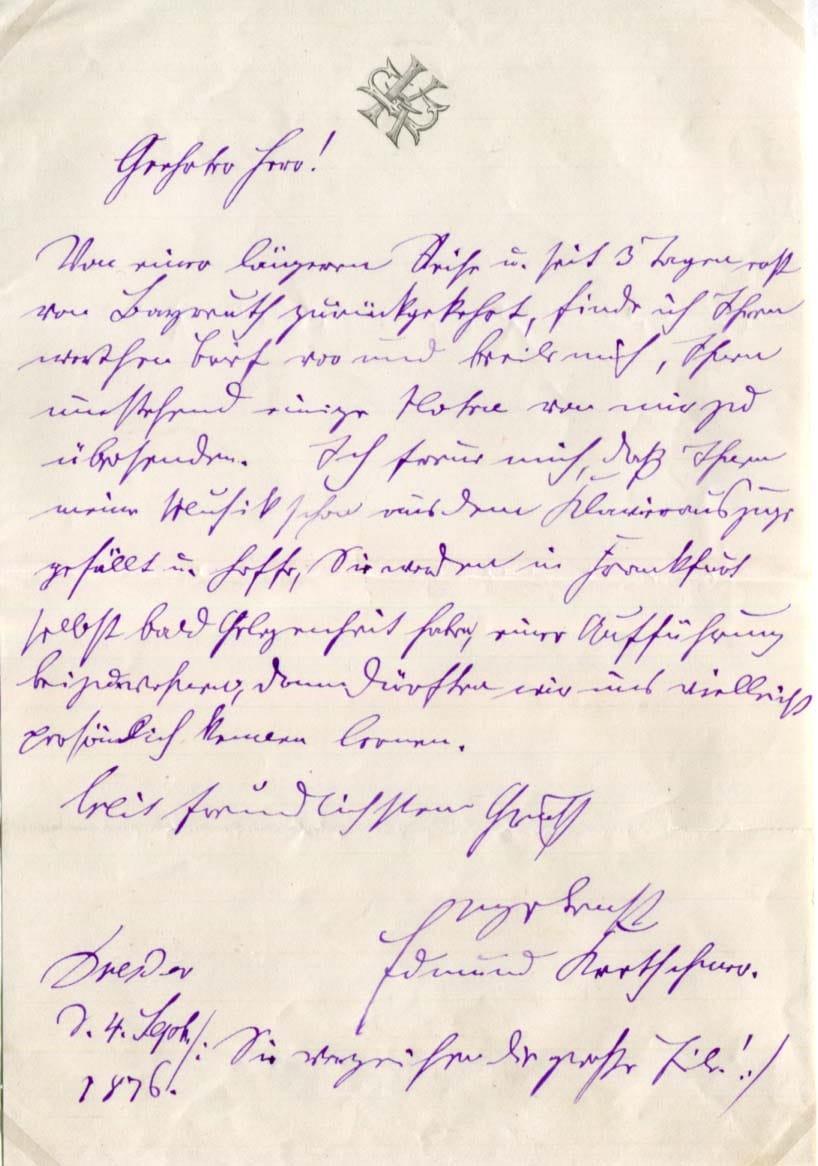 Geehrter Herr!
Von einer längeren Reise u. seit 3 Tagen erst
von Bayreuth zurückgekehrt, finde ich Ihren
werthen Brief vor und beeile mich, Ihnen
umstehend einige Noten von mir zu
übersenden. Ich freue mich, daß Ihnen
meine Musik schon aus dem Klavierauszuge
gefällt u. hoffe, Sie werden in Frankfurt
selbst bald Gelegenheit haben, einer Aufführung
beizuwohnen, dann dürften wir uns vielleicht
persönlich kennen lernen.
Mit freundlichstem Gruß
ergebenst
Edmund Kretschmer.
Dresden
d. 4. Sept.
1876.
/: Sie verzeihen die große Eile! :/